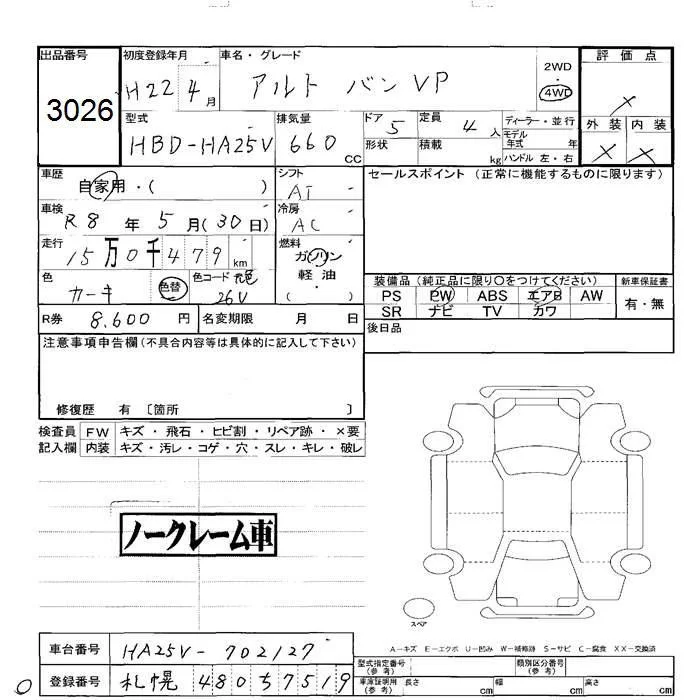 出品番号 初度登録年月 車名・グレード 2WD 評価点
3026 H22 4月 アルト バン VP 4WD ×
外装 内装
× ×
型式 排気量 ドア 定員 ディーラー・並行
HBD-HA25V 660 CC 5 4人 モデル年式 年
形状 積載 kg ハンドル 左・右
車歴 自家用・( ) シフト AT セールスポイント (正常に機能するものに限ります)
車検 R8年 5月(30日) 冷房 AC
走行 15万0千479km 燃料 ガソリン
軽油
( )
色 カーキ 色替 色コード 26V
装備品 (純正品に限り○をつけてください) 新車保証書
PS PW ABS エアB AW 有・無
SR ナビ TV カワ
R券 8,600円 名変期限 月 日 後日品
注意事項申告欄 (不具合内容等は具体的に記入して下さい)
修復歴 有 〔箇所 〕
検査員 FW キズ・飛石・ヒビ割・リペア跡・×要
記入欄 内装 キズ・汚レ・コゲ・穴・スレ・キレ・破レ
ノークレーム車
スペア
A-キズ E-エクボ U-凹み W-補修跡 S-サビ C-腐食 XX-交換済
車台番号 HA25V-702127 型式指定番号(参考) 類別区分番号(参考)
登録番号 札幌 480 ち 7519 車庫証明用(参考) 長さ cm 幅 cm 高さ cm